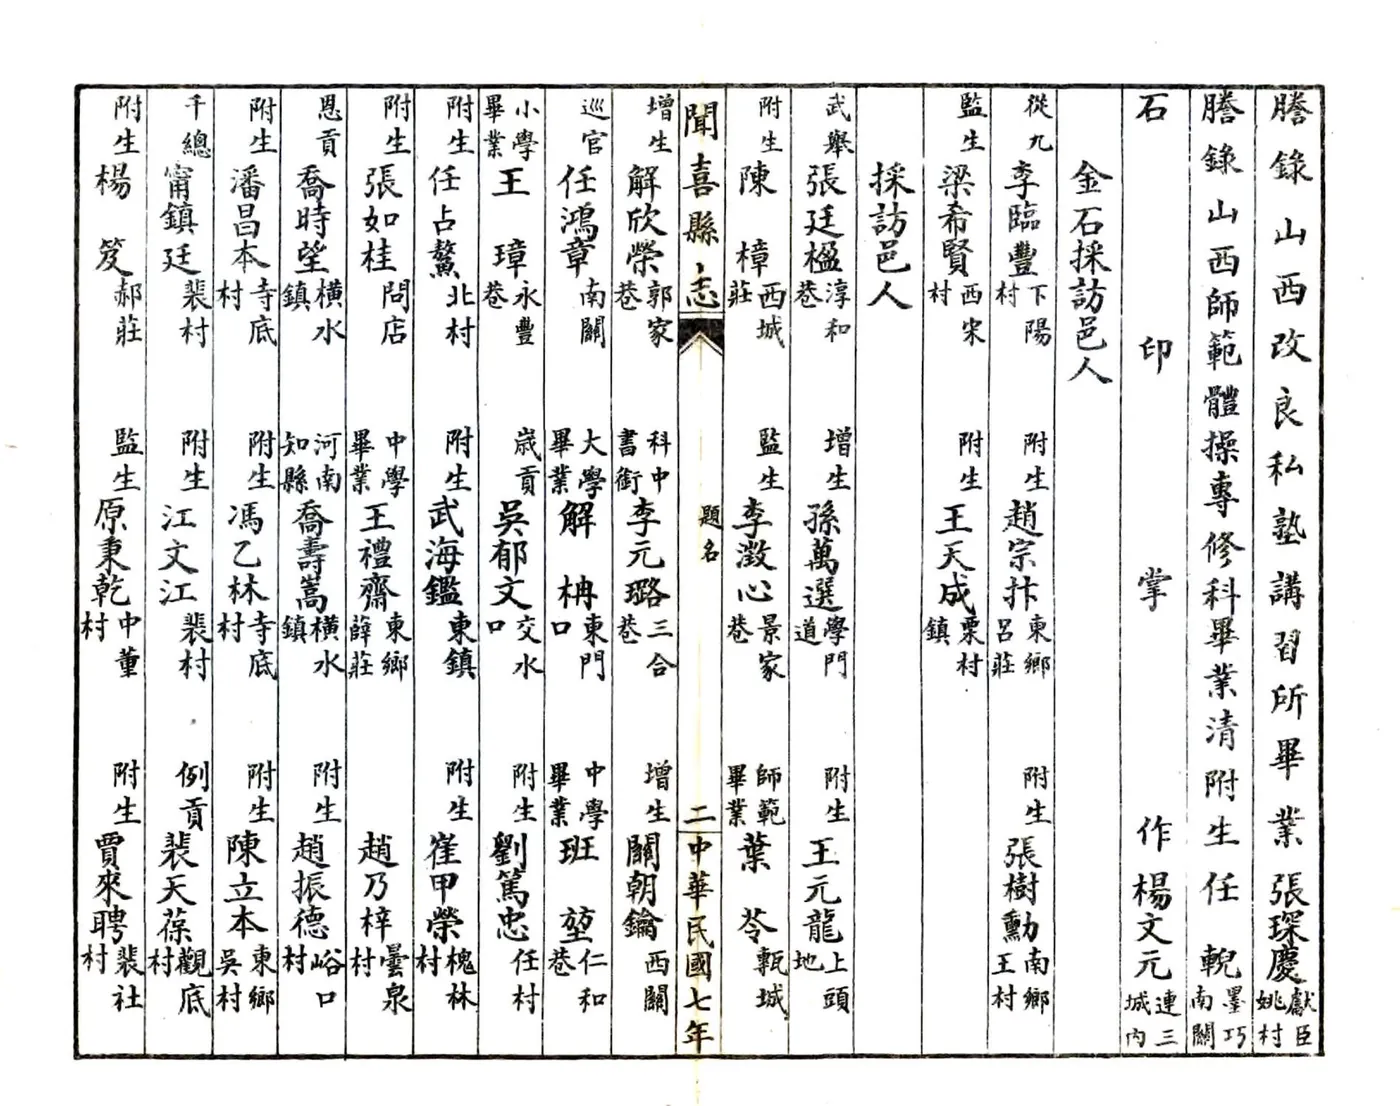 謄錄山西改良私塾講習所畢業張琛慶獻臣姚村
謄錄山西師範體操專修科畢業清附生任𫐐墨巧南關
石印掌作楊文元連三城內
金石採訪邑人
從九李臨豐下陽村 附生趙宗抃東鄉呂莊 附生張樹勳南鄉王村
監生梁希賢西宋村 附生王天成栗村鎮
採訪邑人
武舉張廷楹淳和巷 增生孫萬選學門道 附生王元龍上頭地
附生陳樟西城莊 監生李澂心景家巷 師範畢業葉苓甎城
聞喜縣志 題名 二 中華民國七年
增生解欣榮郭家巷 科中書銜李元璐三合巷 增生關朝鑰西關
巡官任鴻章南關 大學畢業解柟東門口 中學畢業班堃仁和巷
小學畢業王璋永豐巷 歲貢吳郁文交水口 附生劉篤忠任村
附生任占鰲北村 附生武海鑑東鎮 附生崔甲榮槐林村
附生張如桂問店 中學畢業王禮齋東鄉薛莊 趙乃梓曇泉村
恩貢喬時望橫水鎮 河南知縣喬壽嵩橫水鎮 附生趙振德峪口村
附生潘昌本寺底村 附生馮乙林寺底村 附生陳立本東鄉吳村
千總甯鎮廷裴村 附生江文江裴村 例貢裴天葆觀底村
附生楊笈郝莊 監生原秉乾中董村 附生賈來聘裴社村